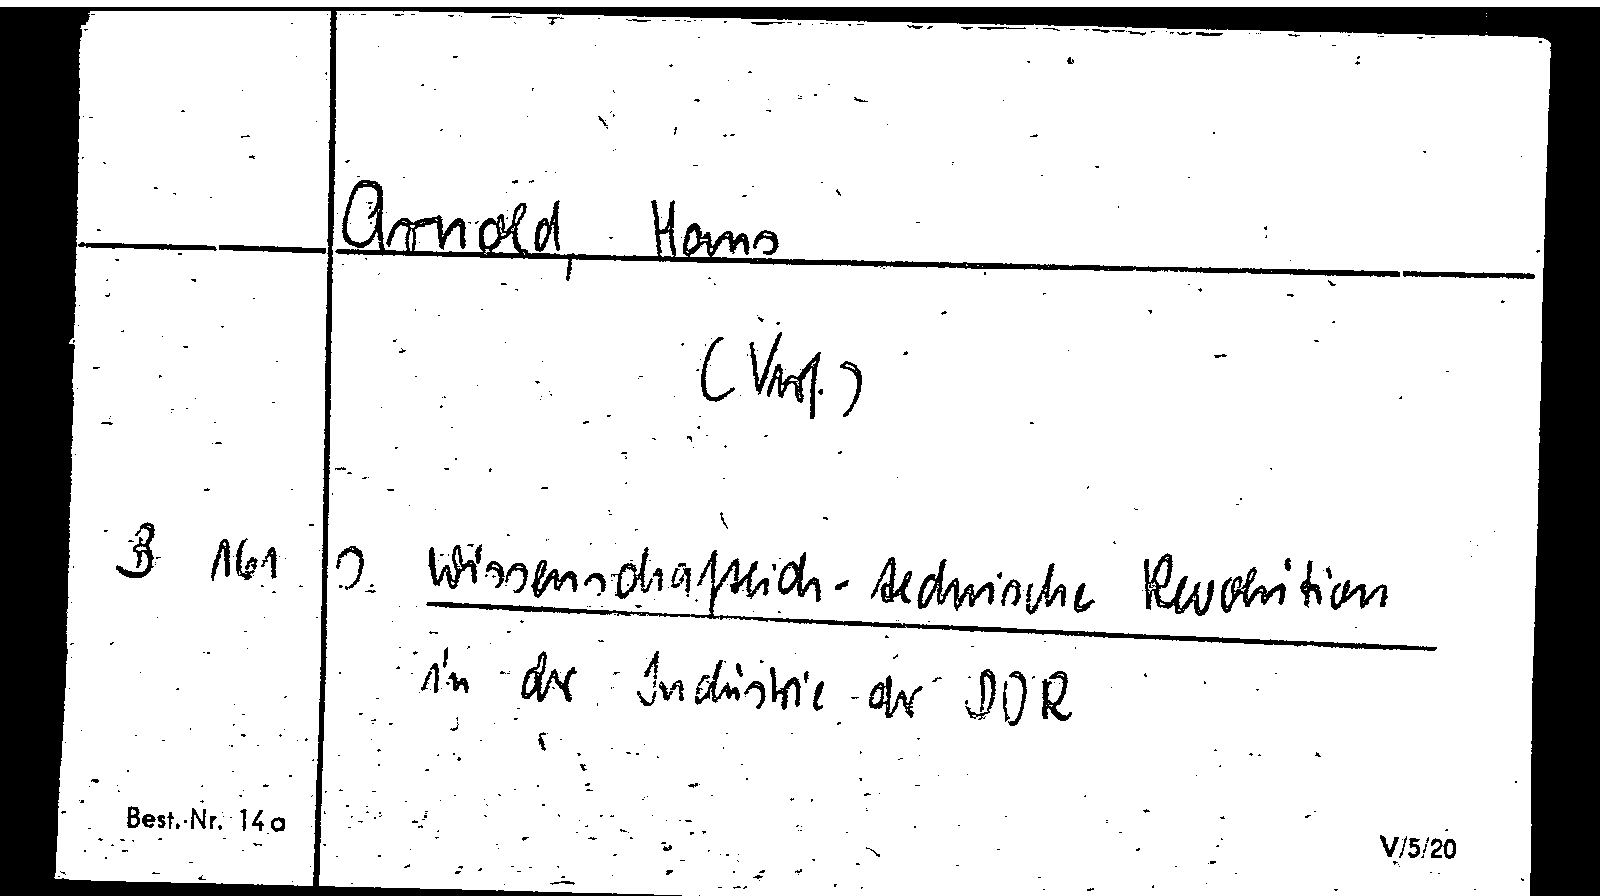 Arnold, Hans
(Verf.)
B 161 D. Wissenschaftlich-technische Revolution
in der Industrie der DDR
Best.-Nr. 14a
V/5/20